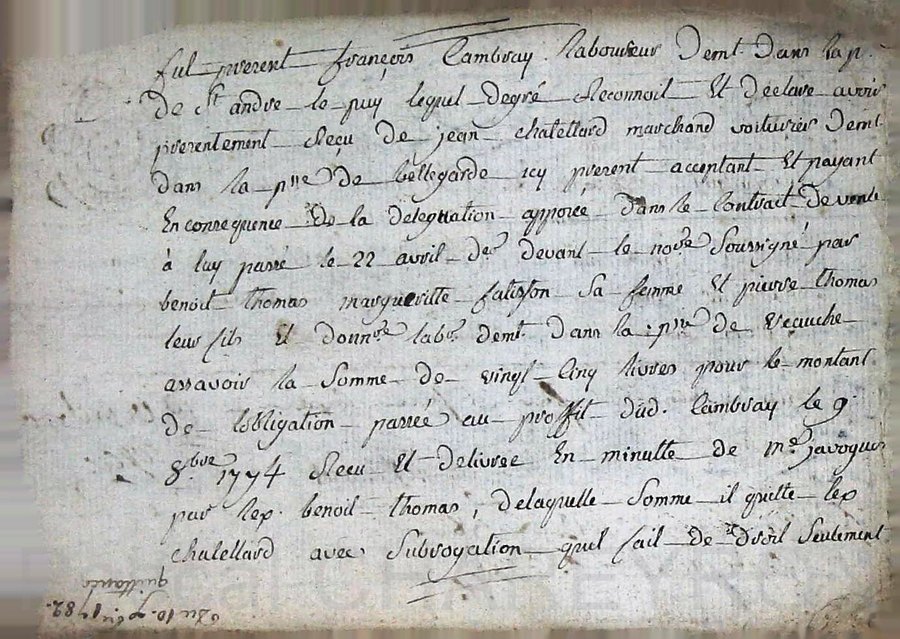 fut present françois Cambray Laboureur demt. dans la p.
de St andre le puy lequel degré Reconnoit Et declare avoir
presentement Recu de jean chatellard marchand voiturier demt.
dans la psse de bellegarde icy present acceptant Et payant
En consequence de la deleguation apposée dans le Contrait de vente
à luy passé le 22 avril der devant le nore Soussigné par
benoit thomas margueritte fatisson sa femme Et pierre thomas
leur fils Et labr. demt. dans la psse de Veauche
assavoir la Somme de vingt Cinq livres pour le montant
de lobligation passée au proffit dud. Cambray le 9.
8.bre 1774 Recu Et delivrée En minutte de me. javogues
par lep. benoit thomas, delaquelle Somme il quitte lep
chatellard avec Subrogation quil fait de droit Seulement
quittance
Du 10. 1782.